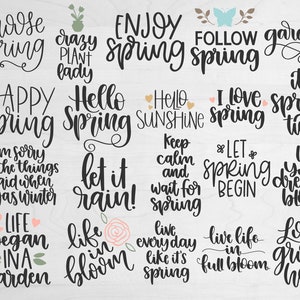 choose
spring
crazy
PLANT
lady
ENJOY
spring
FOLLOW
spring
HAPPY
spring
Hello
Spring
HELLO
SUNSHINE
I love
spring
I'm sorry
the things
said when
was winter
let it
rain!
keep
calm
and
wait for
spring
LET
spring
BEGIN
LIFE
began
IN A
garden
life
in
bloom
live
every day
like it's
spring
live life
in
full bloom